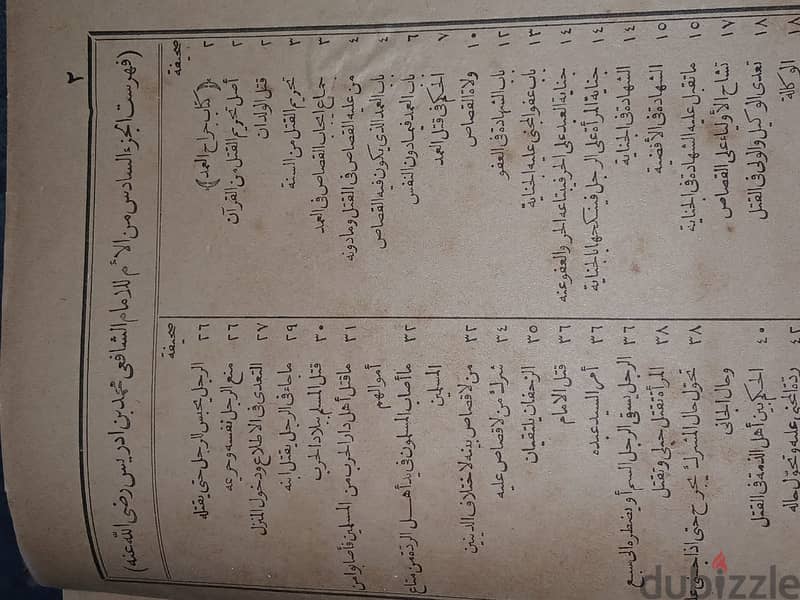 ٢
(فهرست الجزء السادس من الأم للامام الشافعى محمد بن ادريس رضى الله عنه)
صحيفة
٢ ﴿كتاب جراح العمد﴾
٢ أصل تحريم القتل من القرآن
٢ قتل الولدان
٣ تحريم القتل من السنة
٣ جماع ايجاب القصاص فى العمد
٤ من عليه القصاص فى القتل وما دونه
٤ باب العمد الذى يكون فيه القصاص
٦ باب العمد فيما دون النفس
٧ الحكم فى قتل العمد
١٠ ولاة القصاص
١٢ باب الشهادة فى العفو
١٣ باب عفو المجنى عليه الجناية
١٤ جناية العبد على الحر فيبتاعه الحر والعفو عنه
١٤ جناية المرأة على الرجل فينكحها بالجناية
١٤ الشهادة فى الجناية
١٥ الشهادة فى الأقضية
١٥ ما تقبل عليه الشهادة فى الجناية
١٧ تشاح الأولياء على القصاص
١٨ تعدى الوكيل والولى فى القتل
١٨ الوكالة
صحيفة
٢٦ الرجل يحبس الرجل حتى يقتله
٢٦ منع الرجل نفسه وحريمه
٢٧ التعدى فى الاطلاع ودخول المنزل
٢٩ ما جاء فى الرجل يقتل ابنه
٣٠ قتل المسلم ببلاد الحرب
٣١ ما قتل أهل دار الحرب من المسلمين فأصابوا من
أموالهم
٣٢ ما أصاب المسلمون فى يد أهل الردة من متاع
المسلمين
٣٢ من لا قصاص بينه لاختلاف الدينين
٣٤ شرك من لا قصاص عليه
٣٥ الزحفان يلتقيان
٣٦ قتل الامام
٣٦ أمر السيد عبده
٣٦ الرجل يسقى الرجل السم أو يضطره الى سبع
٣٨ المرأة تقتل حبلى وتقتل
٣٨ تحول حال المشرك يجرح حتى اذا جنى
وحال الجانى
٤٠ الحكم بين أهل الذمة فى القتل
٤٢ ردة المجنى عليه وتحول حاله
dubizzle